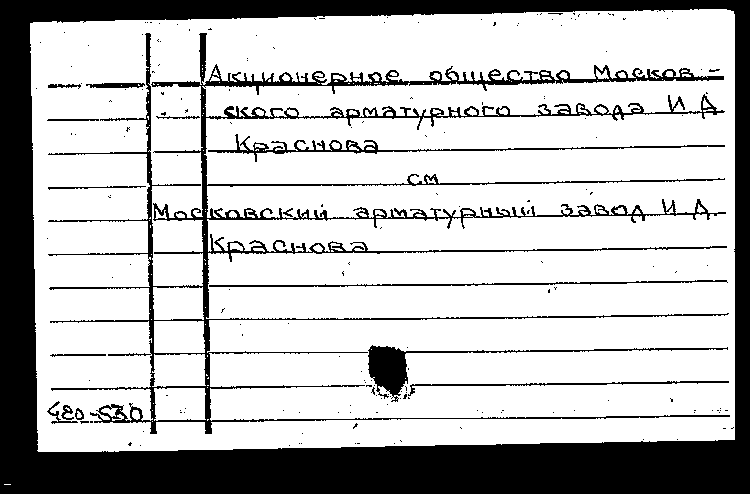 Акционерное общество Москов-
ского арматурного завода И Д
Краснова
см
Московский арматурный завод И Д
Краснова
480-530